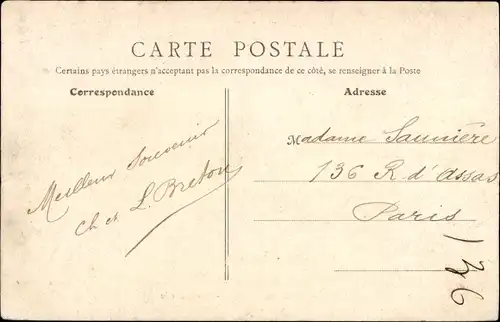 CARTE POSTALE
Certains pays étrangers n'acceptant pas la correspondance de ce côté, se renseigner à la Poste
Correspondance
Meilleur Souvenir
Ch et L. Breton
Adresse
Madame Saunière
136 R d'Assas
Paris